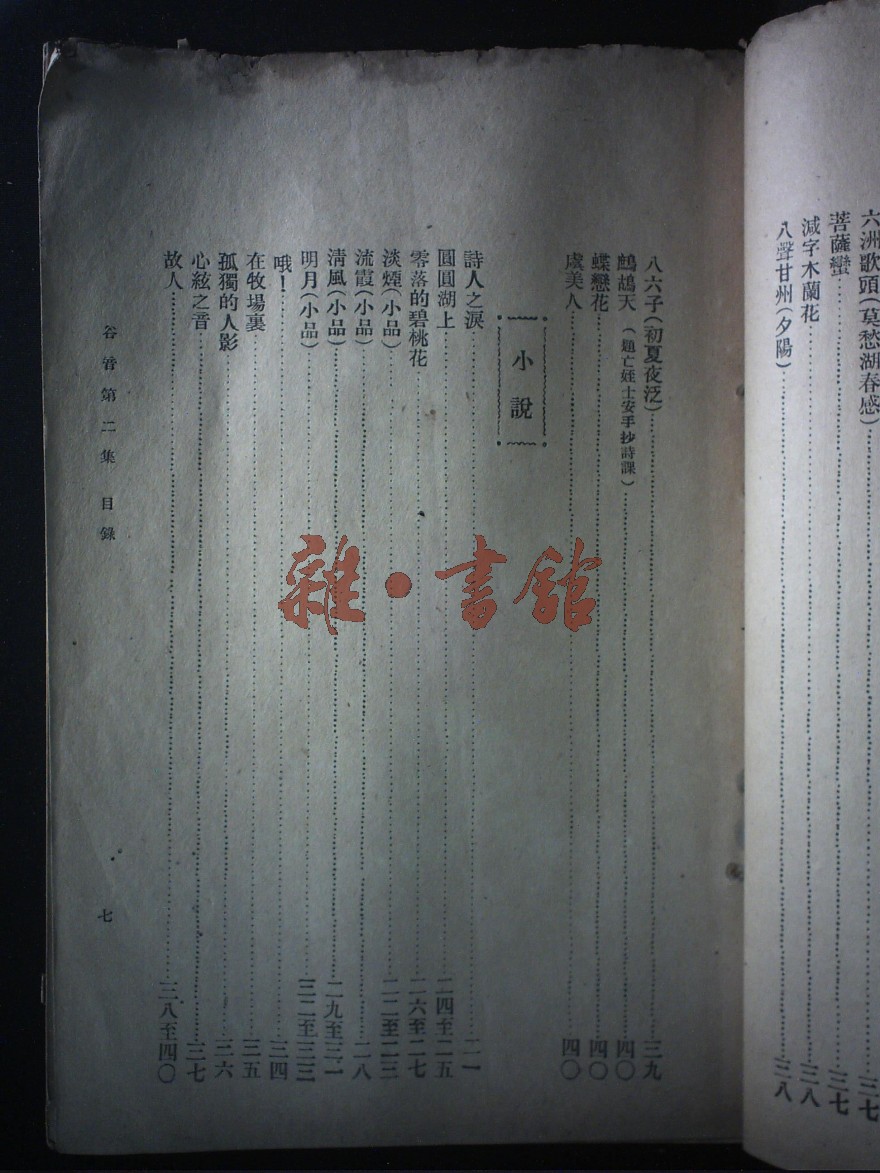 六洲歌頭(莫愁湖春感)……三七
菩薩蠻……三七
減字木蘭花……三八
八聲甘州(夕陽)……三八
八六子(初夏夜泛)……三九
鷓鴣天(題亡姪士安手抄詩課)……四〇
蝶戀花……四〇
虞美人……四〇
小說
詩人之淚……二一
圓圓湖上……二四至二五
零落的碧桃花……二六至二七
淡煙(小品)……二二至二三
流霞(小品)……二八
清風(小品)……二九至三一
明月(小品)……三二至三三
哦!……三四
在牧場裏……三五
孤獨的人影……三六
心絃之音……三七
故人……三八至四〇
谷音第二集 目錄
七
雜·書館